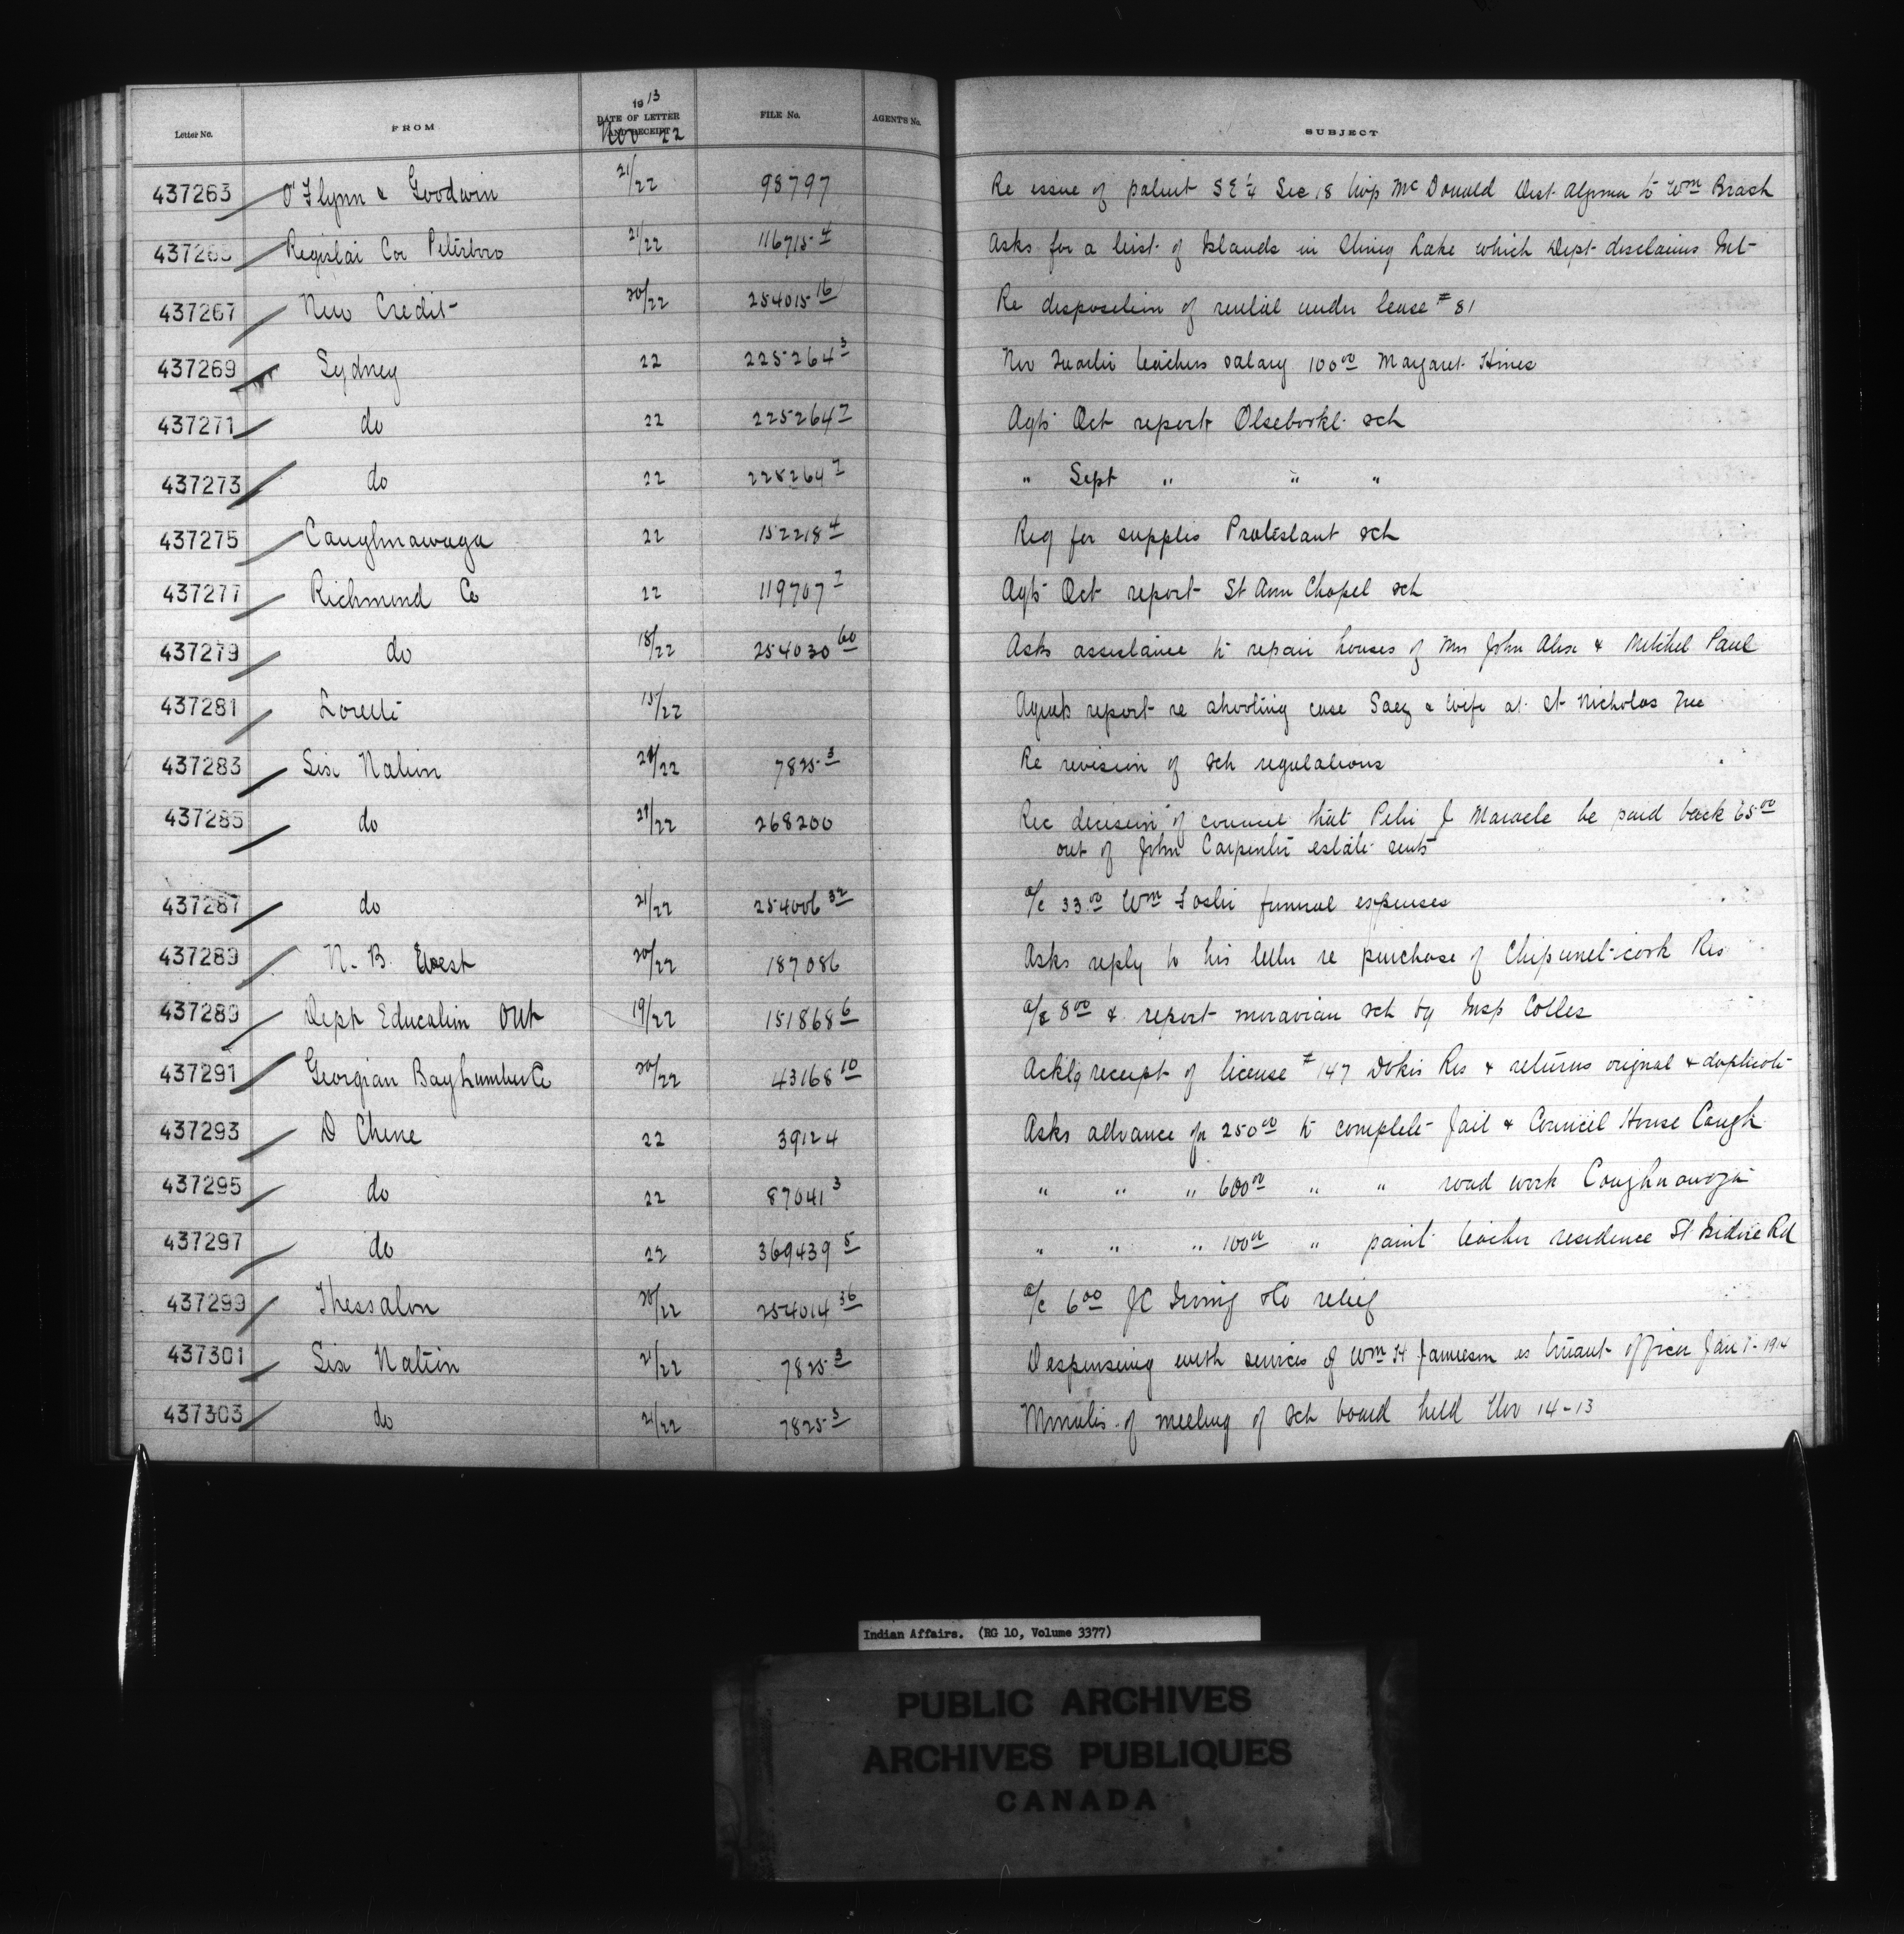 Letter No. FROM 1913 DATE OF LETTER AND RECEIPT Nov 22 FILE No. AGENT'S No. SUBJECT
437263 O'Flynn & Goodwin 21/22 98797 Re issue of patent SE ¼ Sec 18 twp McDonald Dist Algoma to Wm Brash
437265 Co Peterboro 21/22 116715-4 Asks for a list of Islands in Lake which Dept disclaims Int
437267 New Credit 20/22 254015-16 Re disposition of rental under lease #81
437269 Sydney 22 225264 3 Nov teachers salary 100 00 Margaret Hines
437271 do 22 225264 7 Agts Oct report sch
437273 do 22 228264 7 " Sept " " "
437275 Caughnawaga 22 152218 4 Req for supplies Protestant sch
437277 Richmond Co 22 119707 7 Agts Oct report St Ann Chapel sch
437279 do 18/22 254030 60 Asks assistance to repair houses of Mrs John Alex & Mitchel Paul
437281 Lorette 15/22 Agents report re shooting case & wife at St Nicholas
437283 Six Nation 21/22 7825-3 Re revision of sch regulations
437285 do 21/22 268200 Rec decision of council that Peter J Maracle be paid back 65 00
out of John Carpenter estate rents
437287 do 21/22 254006 32 a/c 33 00 Wm Foster funeral expenses
437289 N. B. West 20/22 187086 Asks reply to his letter re purchase of Res
437289 Dept Education Ont 19/22 151868 6 a/c 8 00 & report moravian sch by Insp Colles
437291 Georgian Bay Lumber Co 20/22 43168 10 Acklg receipt of license #147 Dokis Res & returns orignal & duplicate
437293 D Chene 22 39124 Asks advance for 250 00 to complete Jail & Council House Caugh
437295 do 22 87041 3 " " " 600 00 " " road work Caughnawaga
437297 do 22 369439 5 " " " 100 00 " paint teacher residence St Isidore Rd
437299 Thessalon 20/22 254014 36 a/c 6 00 JC Irving relief
437301 Six Nation 21/22 7825-3 Despensing with services of Wm H Jamieson as truant officer Jan 1-1914
437303 do 21/22 7825-3 Minutes of meeting of sch board held Nov 14-13
Indian Affairs. (RG 10, Volume 3377)
PUBLIC ARCHIVES
ARCHIVES PUBLIQUES
CANADA